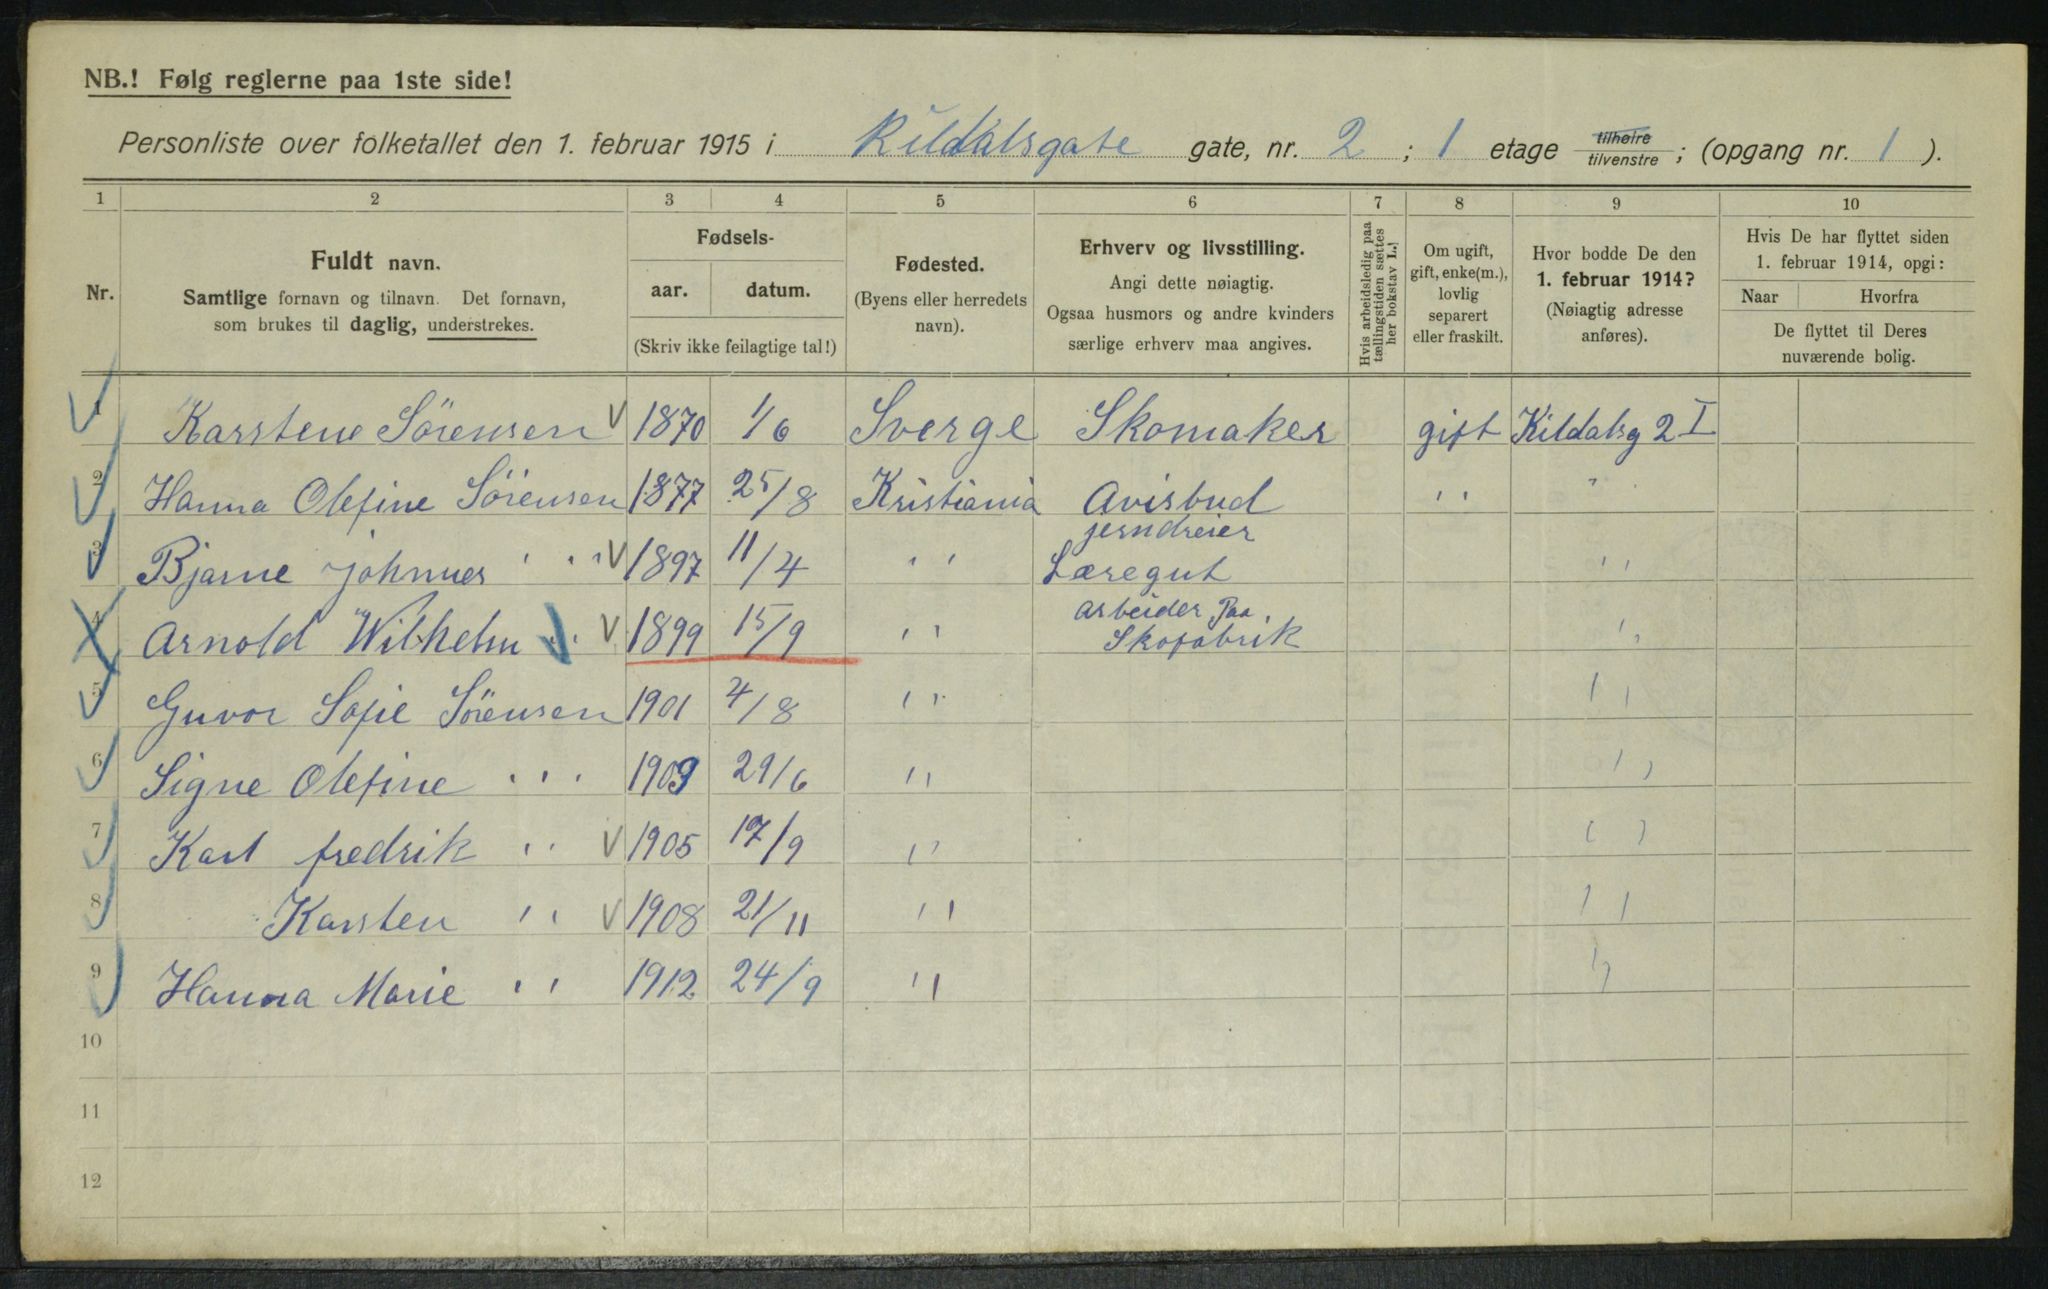 NB.! Følg reglerne paa 1ste side!
Personliste over folketallet den 1. februar 1915 i Kildalsgate gate, nr. 2 ; 1 etage tilhøire tilvenstre ; (opgang nr. 1 ).
1 2 3 4 5 6 7 8 9 10
Nr.
Fuldt navn.
Samtlige fornavn og tilnavn. Det fornavn,
som brukes til daglig, understrekes.
Fødsels-
aar. datum.
(Skriv ikke feilagtige tal!)
Fødested.
(Byens eller herredets
navn).
Erhverv og livsstilling.
Angi dette nøiagtig.
Ogsaa husmors og andre kvinders
særlige erhverv maa angives.
Hvis arbeidsledig paa
tællingstiden sættes
her bokstav L.!
Om ugift,
gift, enke(m.),
lovlig
separert
eller fraskilt.
Hvor bodde De den
1. februar 1914?
(Nøiagtig adresse
anføres).
Hvis De har flyttet siden
1. februar 1914, opgi:
Naar Hvorfra
De flyttet til Deres
nuværende bolig.
1 Karstene Sörensen 1870 1/6 Sverge Skomaker gift Kildalsg 2 I
2 Hanna Olefine Sörensen 1877 25/8 Kristiania Avisbud " "
jerndreier
3 Bjarne Johnnes " " 1897 11/4 " Læregut "
arbeider Paa
4 Arnold Wilhelm " 1899 15/9 " Skofabrik "
5 Guvor Sofie Sörensen 1901 4/8 " "
6 Signe Olefine " 1903 29/6 " "
7 Karl fredrik " 1905 17/9 " "
8 Karsten " 1908 21/11 " "
9 Hanna Marie " 1912 24/9 " "
10
11
12